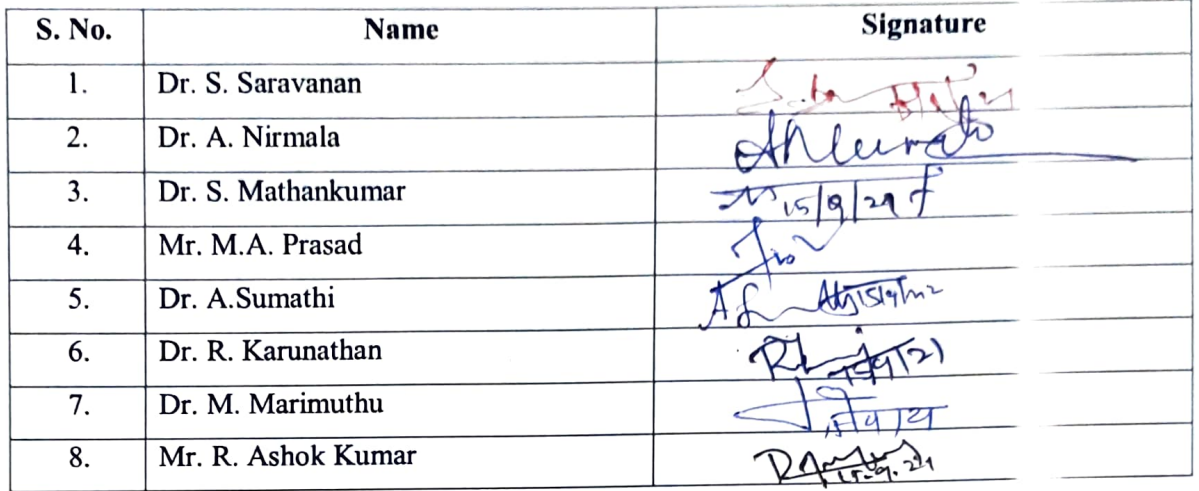 S. No. Name Signature
1. Dr. S. Saravanan
2. Dr. A. Nirmala
3. Dr. S. Mathankumar 15/9/21
4. Mr. M.A. Prasad
5. Dr. A.Sumathi
6. Dr. R. Karunathan
7. Dr. M. Marimuthu
8. Mr. R. Ashok Kumar 15.9.21